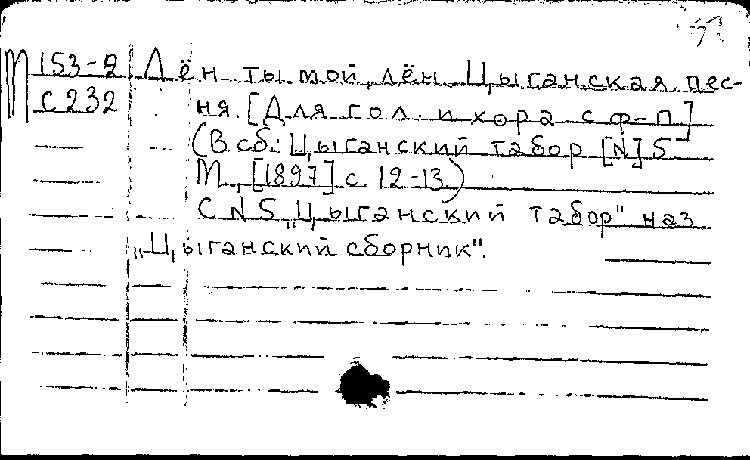 М 153-2 Лён ты мой, лён. Цыганская пес-
с 232 ня. [Для гол. и хора с ф-п]
(В сб.: Цыганский табор [N] 5
М., [1897] с. 12-13.)
С N 5 „Цыганский табор" наз.
„Цыганский сборник".